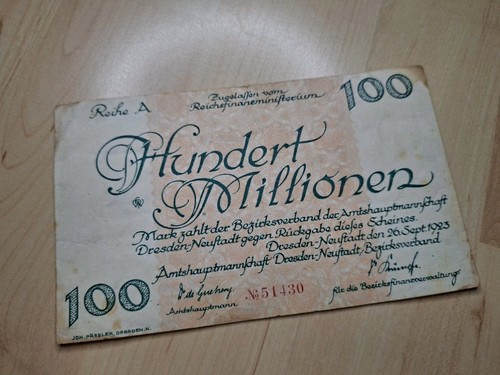 Reihe A
Zugelassen vom
Reichsfinanzministerium
100
Hundert
Millionen
Mark zahlt der Bezirksverband der Amtshauptmannschaft
Dresden-Neustadt gegen Rückgabe dieses Scheines.
Dresden-Neustadt den 26. Sept. 1923
Amtshauptmannschaft Dresden-Neustadt, Bezirksverband
100
Amtshauptmann
№ 51430
für die Bezirksfinanzverwaltung
JOH. PÄSSLER, DRESDEN, N.